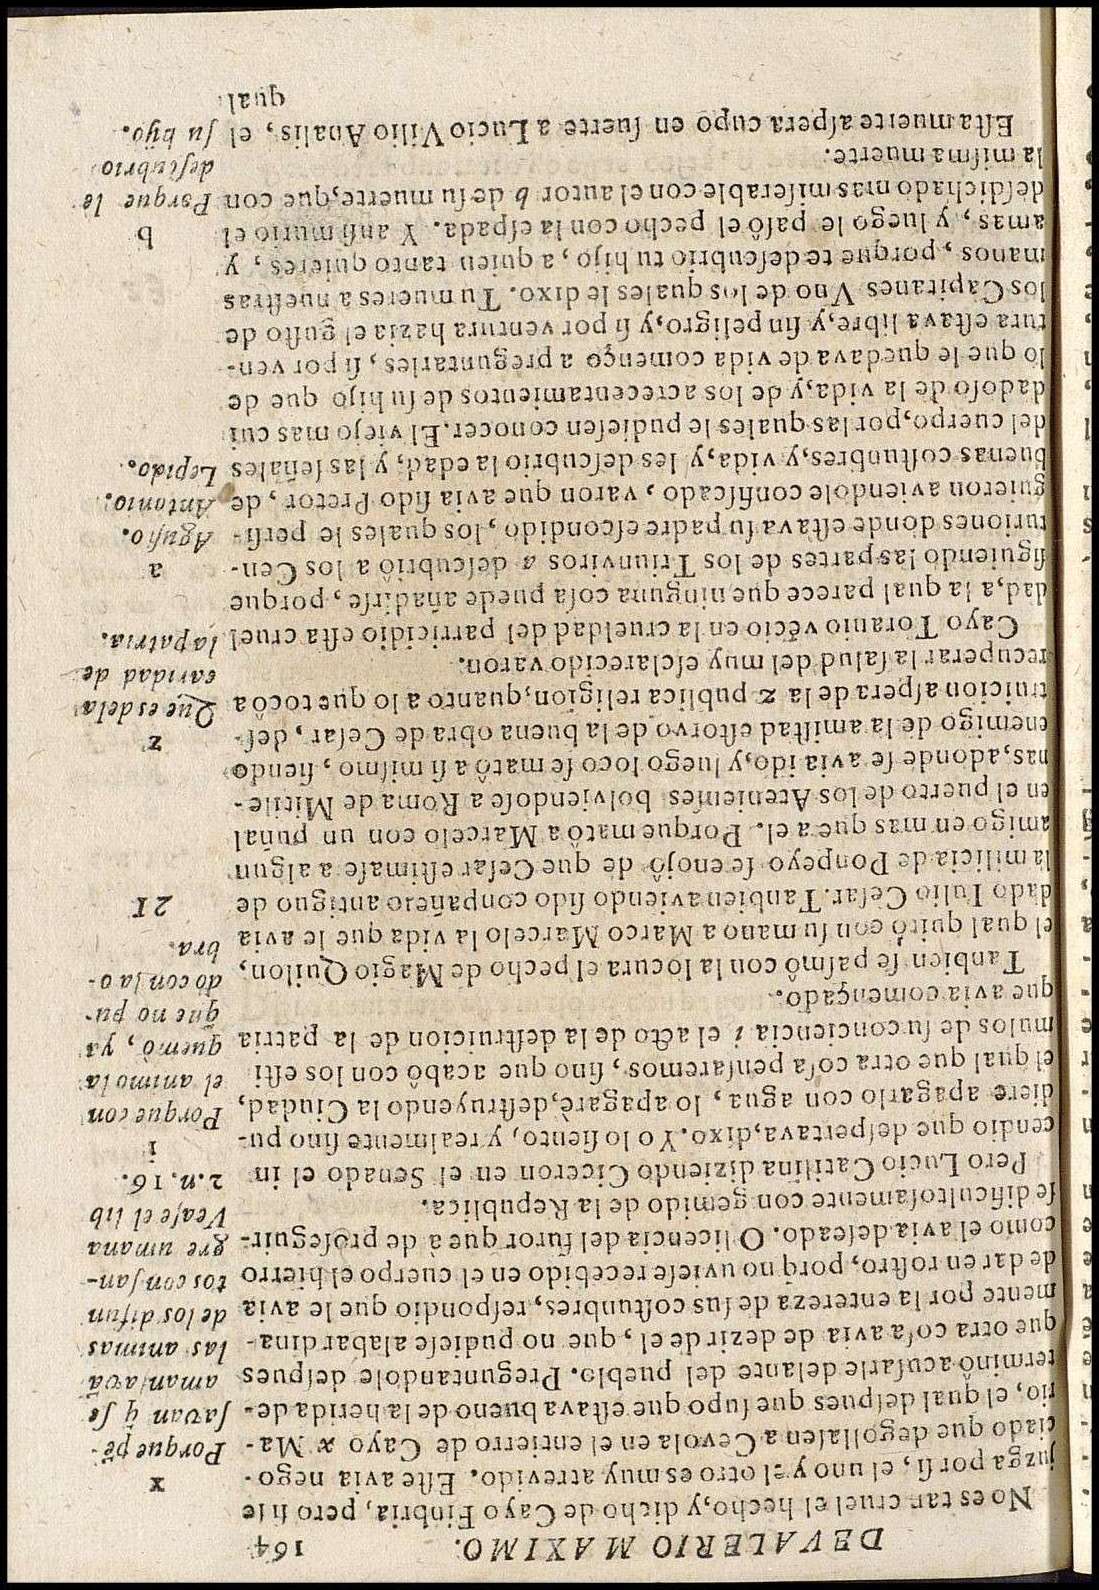 164 DE VALERIO MAXIMO.
No es tan cruel el hecho, y dicho de Cayo Finbria, pero si se
juzga por si, el uno y el otro es muy atrevido. Este avia nego-
ciado que degollasen a Cevola en el entierro de Cayo x Ma-
rio, el qual despues que supo que estava bueno de la herida de-
terminô acusarle delante del pueblo. Preguntandole despues
que otra cosa avia de dezir de el, que no pudiese alabar dina-
mente por la entereza de sus costunbres, respondio que le avia
de dar en rostro, porq̃ no uviese recebido en el cuerpo el hierro
como el avia deseado. O licencia del furor que à de proseguir-
se dificultosamente con gemido de la Republica.
Pero Lucio Catilina diziendo Ciceron en el Senado el in
cendio que despertava, dixo. Yo lo siento, y realmente sino pu-
diere apagarlo con agua, lo apagarè, destruyendo la Ciudad,
el qual que otra cosa pensaremos, sino que acabô con los esti
mulos de su conciencia i el acto de la destruicion de la patria
que avia començado.
Tanbien se pasmô con la locura el pecho de Magio Quilon,
el qual quitô con su mano a Marco Marcelo la vida que le avia
dado Iulio Cesar. Tanbien aviendo sido conpañero antiguo de
la milicia de Ponpeyo se enojô de que Cesar estimase a algun
amigo en mas que a el. Porque matô a Marcelo con un puñal
en el puerto de los Atenienses bolviendose a Roma de Mitile-
nas, adonde se avia ido, y luego loco se matô a si mismo, siendo
enemigo de la amistad estorvo de la buena obra de Cesar, des-
truicion aspera de la z publica religion, quanto a lo que tocô a
recuperar la salud del muy esclarecido varon.
Cayo Toranio vẽcio en la crueldad del parricidio esta cruel
dad, a la qual parece que ninguna cosa puede añadirse, porque
siguiendo las partes de los Triunviros a descubriô a los Cen-
turiones donde estava su padre escondido, los quales le persi-
guieron aviendole confiscado, varon que avia sido Pretor, de
buenas costunbres, y vida, y les descubrio la edad, y las señales
del cuerpo, por las quales le pudiesen conocer. El viejo mas cui
dadoso de la vida, y de los acrecentamientos de su hijo que de
lo que le quedava de vida començo a preguntarles, si por ven-
tura estava libre, y sin peligro, y si por ventura hazia el gusto de
los Capitanes Vno de los quales le dixo. Tu mueres a nuestras
manos, porque te descubrio tu hijo, a quien tanto quieres, y
amas, y luego le pasô el pecho con la espada. Y ansi murio el
desdichado mas miserable con el autor b de su muerte, que con
la misma muerte.
Esta muerte aspera cupo en suerte a Lucio Vilio Analis, el
qual
x
Porque pẽ-
savan q̃ se
amansavã
las animas
de los difun
tos con san-
gre umana
Vease el lib
2. n. 16.
i
Porque con
el animo la
quemò, ya
que no pu-
do con la o-
bra.
21
z
Que es de la
caridad de
la patria.
a
Agusto.
Antonio.
Lepido.
b
Porque le
descubrio
su hijo.